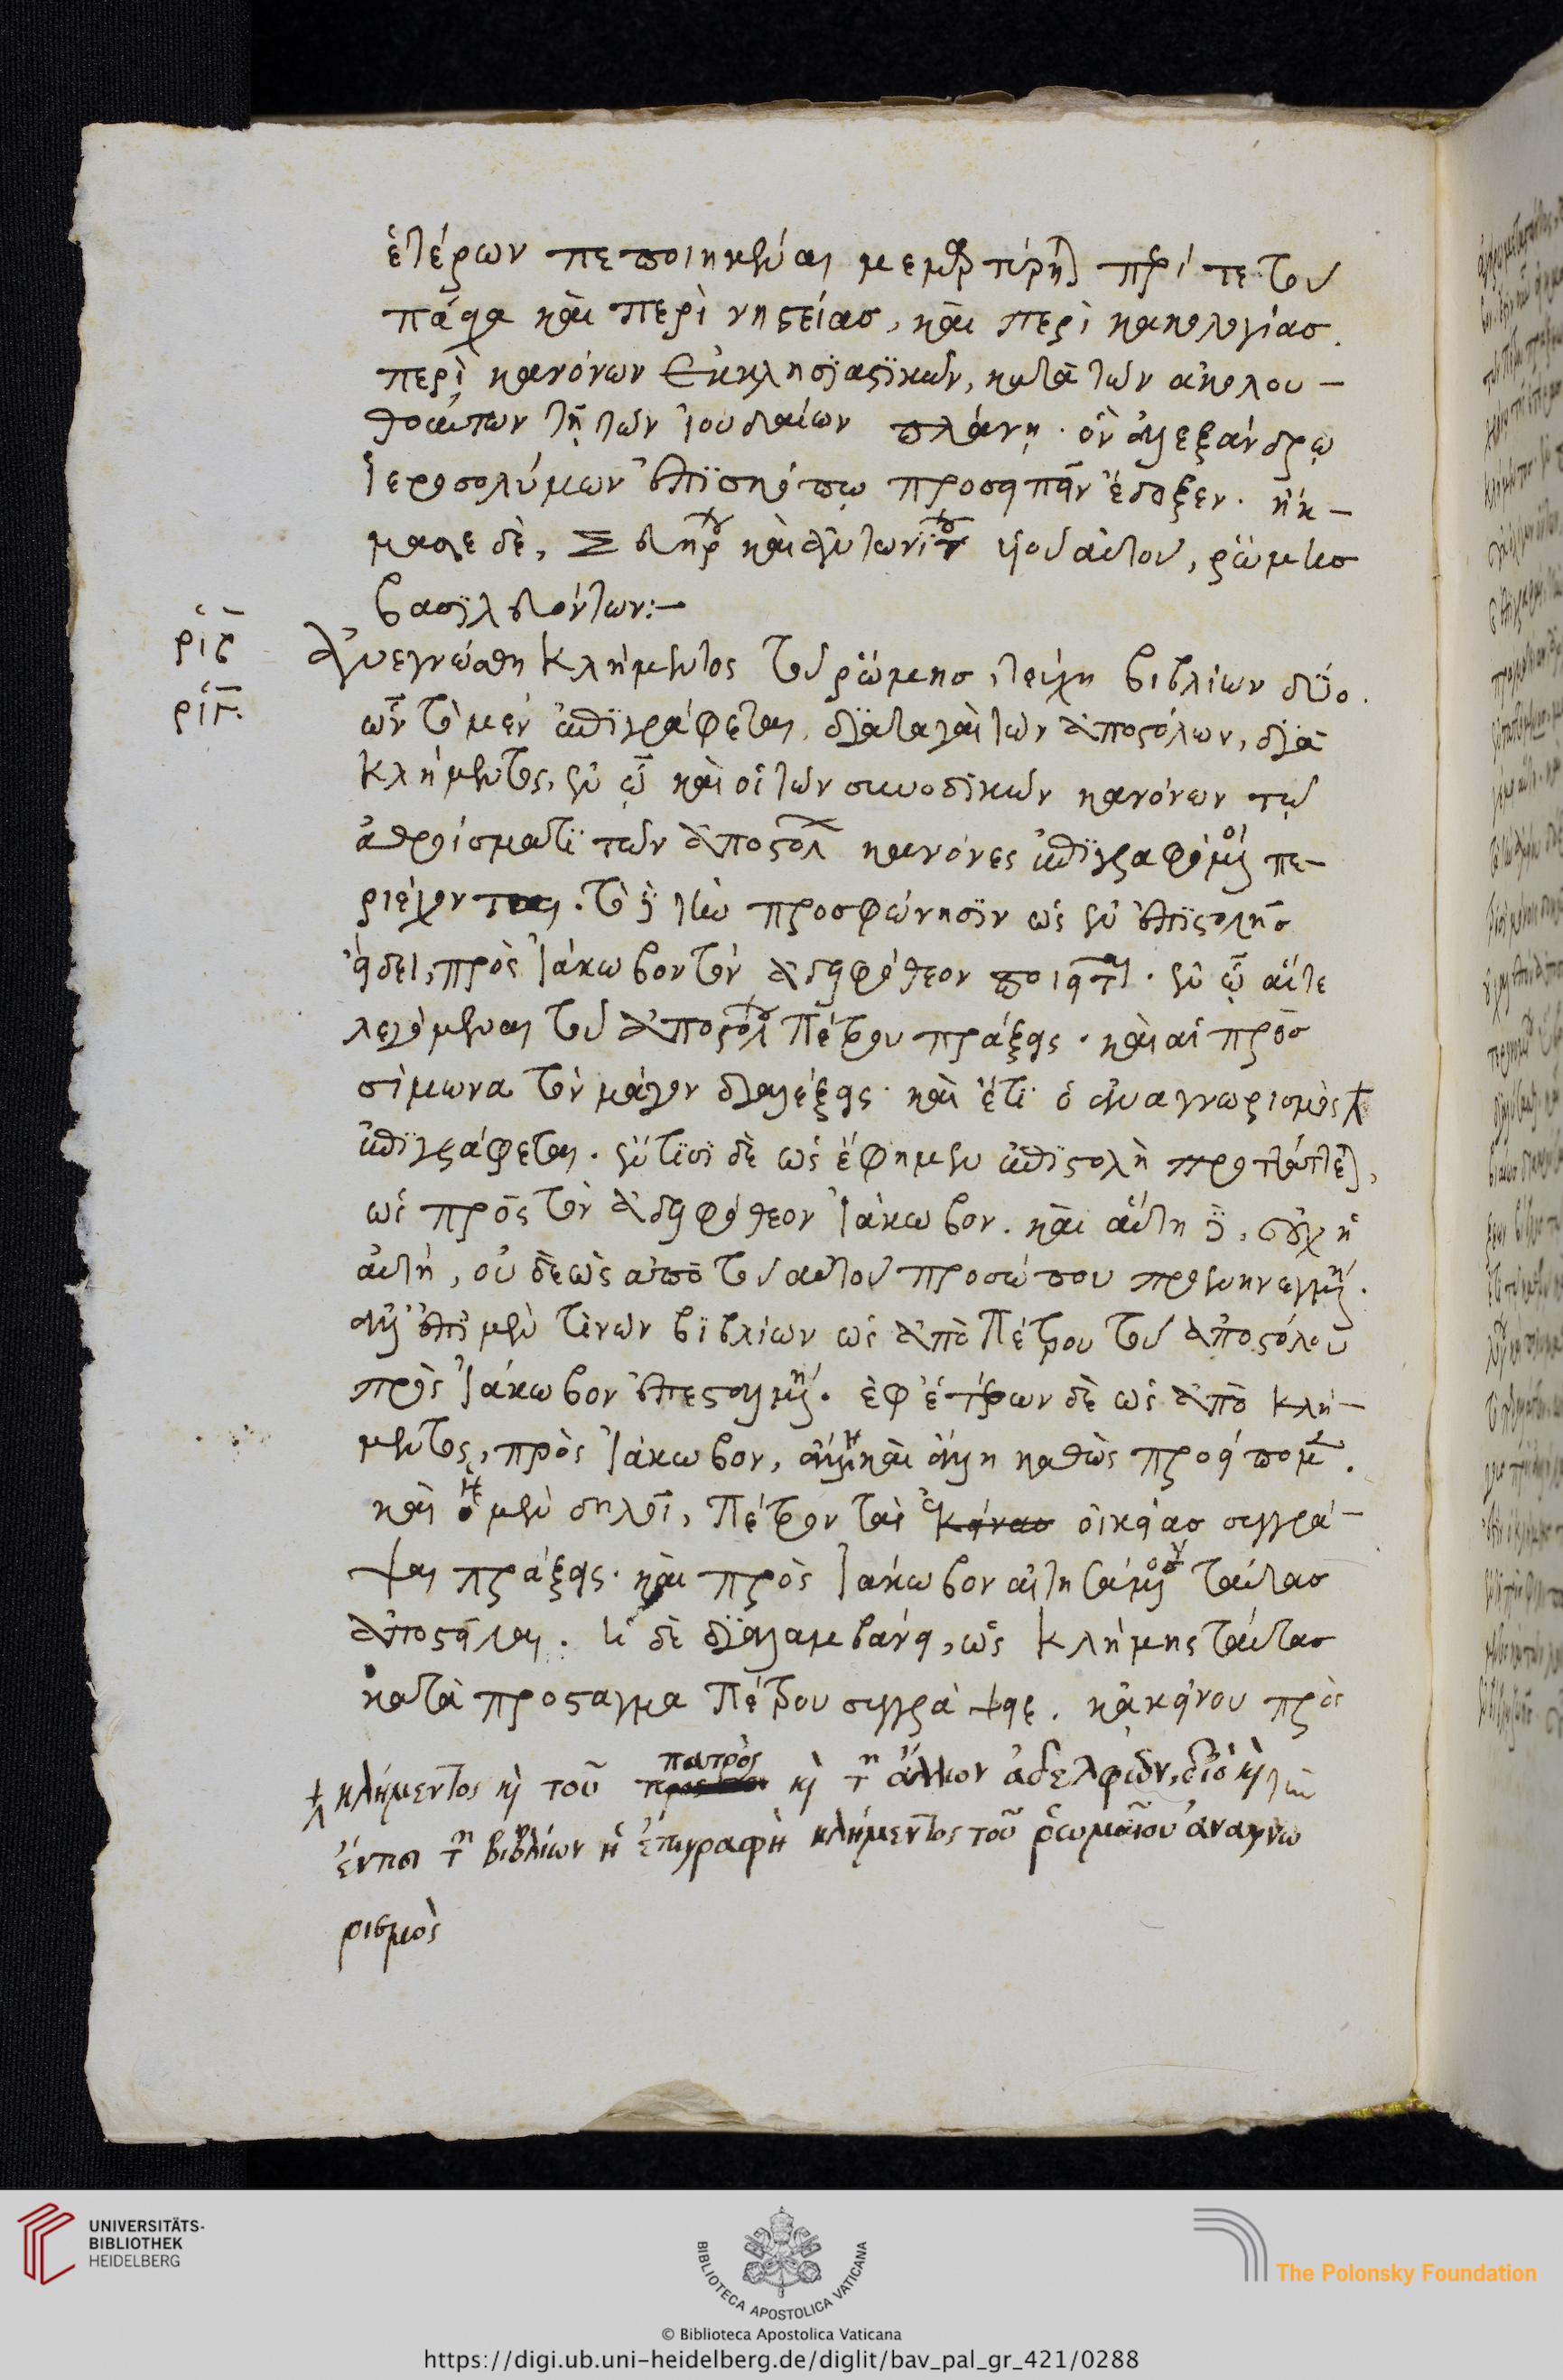 ἑτέρων πεποιηκέναι μεμαρτύρηται περί τε τοῦ
πάσχα καὶ περὶ νηστείας, καὶ περὶ κακολογίας.
περὶ κανόνων ἐκκλησιαστικῶν, κατὰ τῶν ἀκολου-
θούντων τῇ τῶν ἰουδαίων πλάνῃ. ὃν ἀλεξάνδρῳ
ἱεροσολύμων ἐπισκόπῳ προσειπεῖν ἔδοξεν. ἤκ-
μασε δὲ, Σευήρου καὶ ἀντωνίνου υἱοῦ αὐτοῦ, ῥώμης
βασιλευόντων:-
ριβ
ριγ.
Ἀνεγνώσθη Κλήμεντος τοῦ ῥώμης, τεύχη βιβλίων δύο.
ὧν τὸ μὲν ἐπιγράφεται, διαταγαὶ τῶν ἀποστόλων, διὰ
Κλήμεντος, ἐν ᾧ καὶ οἱ τῶν συνοδικῶν κανόνων τῷ
ἀθροίσματι τῶν ἀποστόλων κανόνες ἐπιγραφόμενοι πε-
ριέχονται. τὸ δὲ τὴν προσφώνησιν ὡς ἐν ἐπιστολῆς
εἴδει, πρὸς Ἰάκωβον τὸν ἀδελφόθεον ποιεῖται. ἐν ᾧ αἵ τε
λεγόμεναι τοῦ ἀποστόλου Πέτρου πράξεις. καὶ αἱ πρὸς
σίμωνα τὸν μάγον διαλέξεις. καὶ ἔτι ὁ ἀναγνωρισμὸς
ἐπιγράφεται. ἔν τισι δὲ ὡς ἔφημεν ἐπιστολὴ προτάττεται,
ὡς πρὸς τὸν ἀδελφόθεον Ἰάκωβον. καὶ αὕτη δὲ, οὐχ ἡ
αὐτή, οὐδὲ ὡς ἀπὸ τοῦ αὐτοῦ προσώπου προενηνεγμένη.
ἀλλ' ἐπὶ μὲν τινῶν βιβλίων ὡς ἀπὸ Πέτρου τοῦ ἀποστόλου
πρὸς Ἰάκωβον ἐπεσταλμένη. ἐφ' ἑτέρων δὲ ὡς ἀπὸ Κλή-
μεντος, πρὸς Ἰάκωβον, ἄλλη καὶ ἄλλη καθὼς προείπομεν.
καὶ ἡ μὲν δηλοῖ, Πέτρον τὰς οἰκείας συγγρά-
ψαι πράξεις. καὶ πρὸς Ἰάκωβον αἰτησάμενον ταύτας
ἀποστεῖλαι. ἡ δὲ διαλαμβάνει, ὡς Κλήμης ταύτας
κατὰ προσταγμα Πέτρου συγγράψειε. κἀκείνου πρὸς
κλήμεντος κὶ τοῦ πατρὸς κὶ τῶν ἄλλων ἀδελφῶν, διὸ κὶ
ἔντισι τῶν βιβλίων ἡ ἐπιγραφὴ κλήμεντος τοῦ ῥωμαίου ἀναγνω
ρισμὸς
UNIVERSITÄTS-
BIBLIOTHEK
HEIDELBERG
BIBLIOTECA APOSTOLICA VATICANA
The Polonsky Foundation
© Biblioteca Apostolica Vaticana
https://digi.ub.uni-heidelberg.de/diglit/bav_pal_gr_421/0288